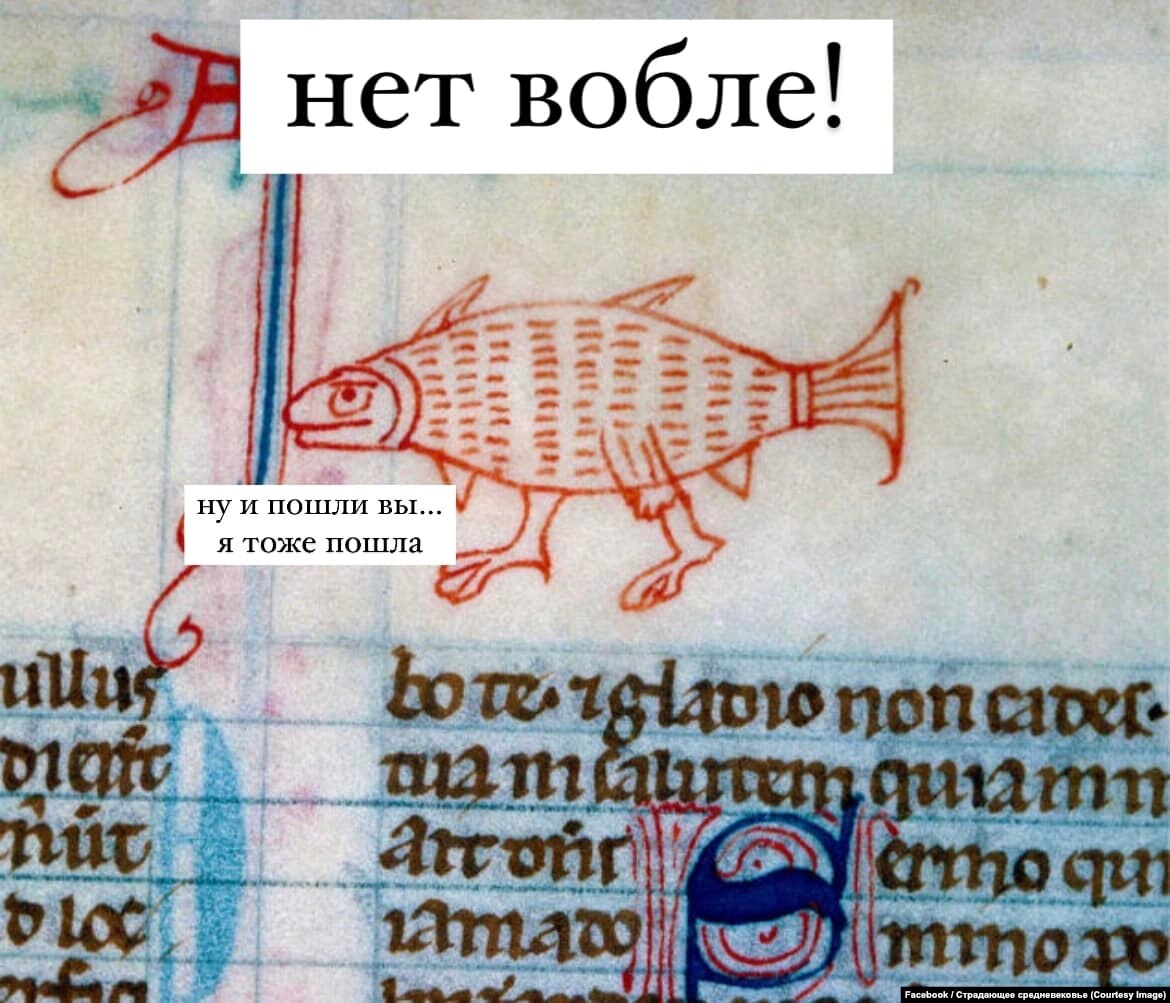 нет вобле!
ну и пошли вы...
я тоже пошла
ullus
bo te ⁊ gladio non cades
tua in salutem quia in
ait dn̄s
ermo qui
d loc
Facebook / Страдающее средневековье (Courtesy Image)